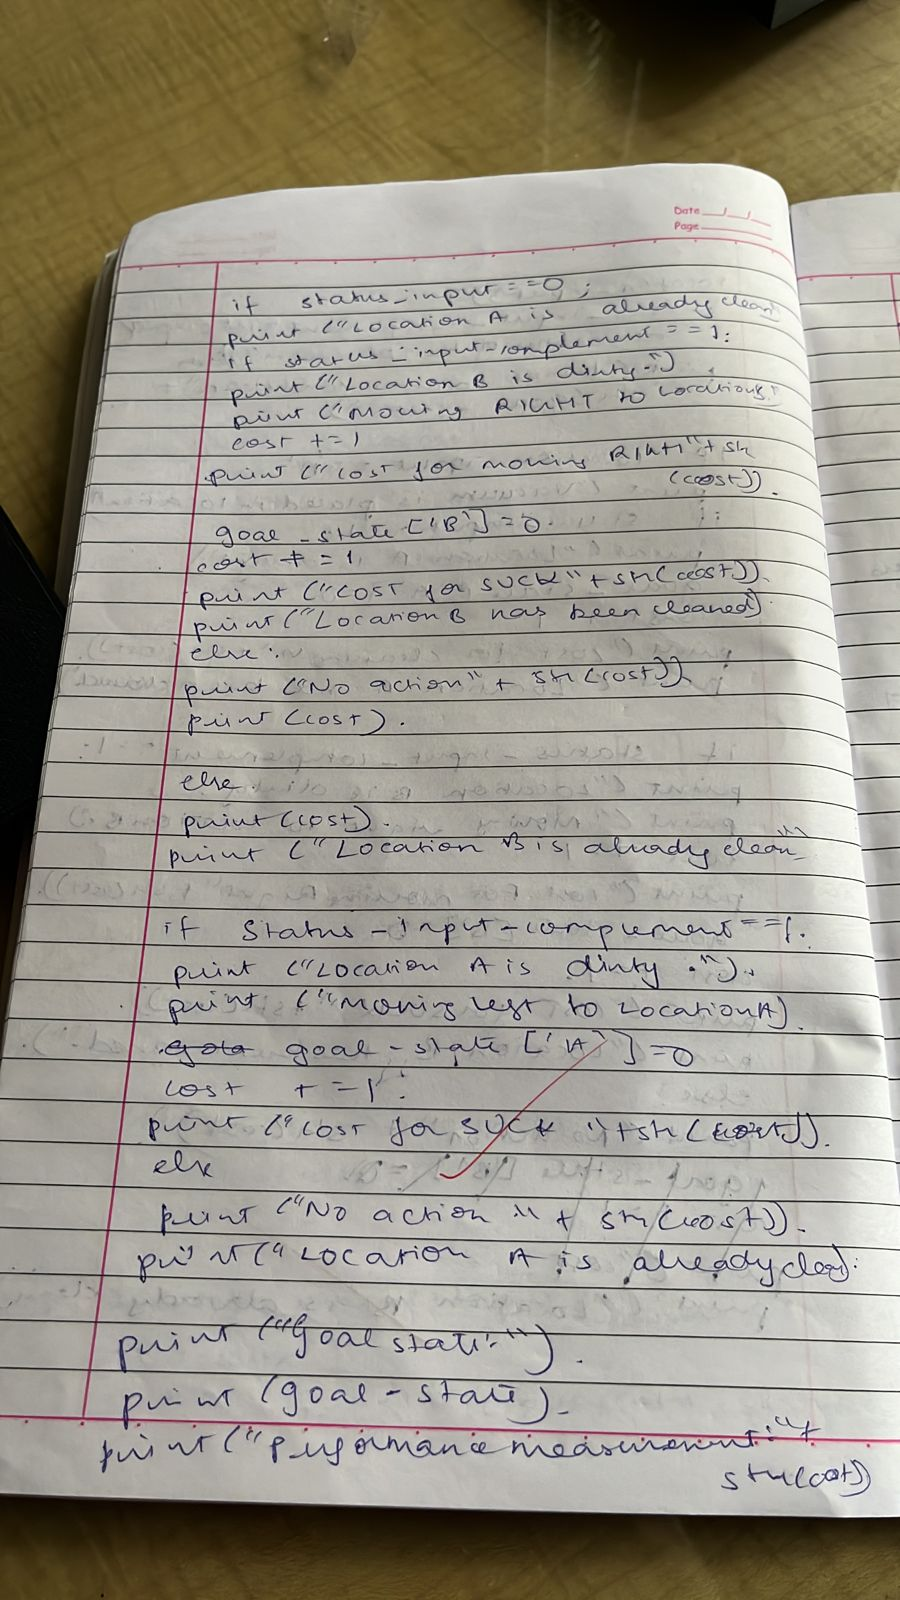 Date / /
Page
if status_input==0;
print ("Location A is already clean
if status_input-complement == 1:
print ("Location B is dirty.")
print ("Moving RIGHT to Location
cost += 1
print ("cost for moving RIGHT" + str
(cost)).
goal _state ['B'] = 0.
cost += 1
print ("COST for SUCK" + str(cost)).
print ("Location B has been cleaned)
else:
print ("No action" + str(cost)).
print (cost).
else.
print (cost).
print ("Location B is already clean")
if status-input-complement==1.
print ("Location A is dirty.").
print ("Moving left to Location A).
goal-state ['A'] = 0
cost += 1
print ("cost for SUCK " + str(cost)).
else
print ("No action " + str(cost)).
print ("Location A is already clean).
print ("Goal state:").
print (goal-state).
print ("Performance measurement:" +
str(cost)